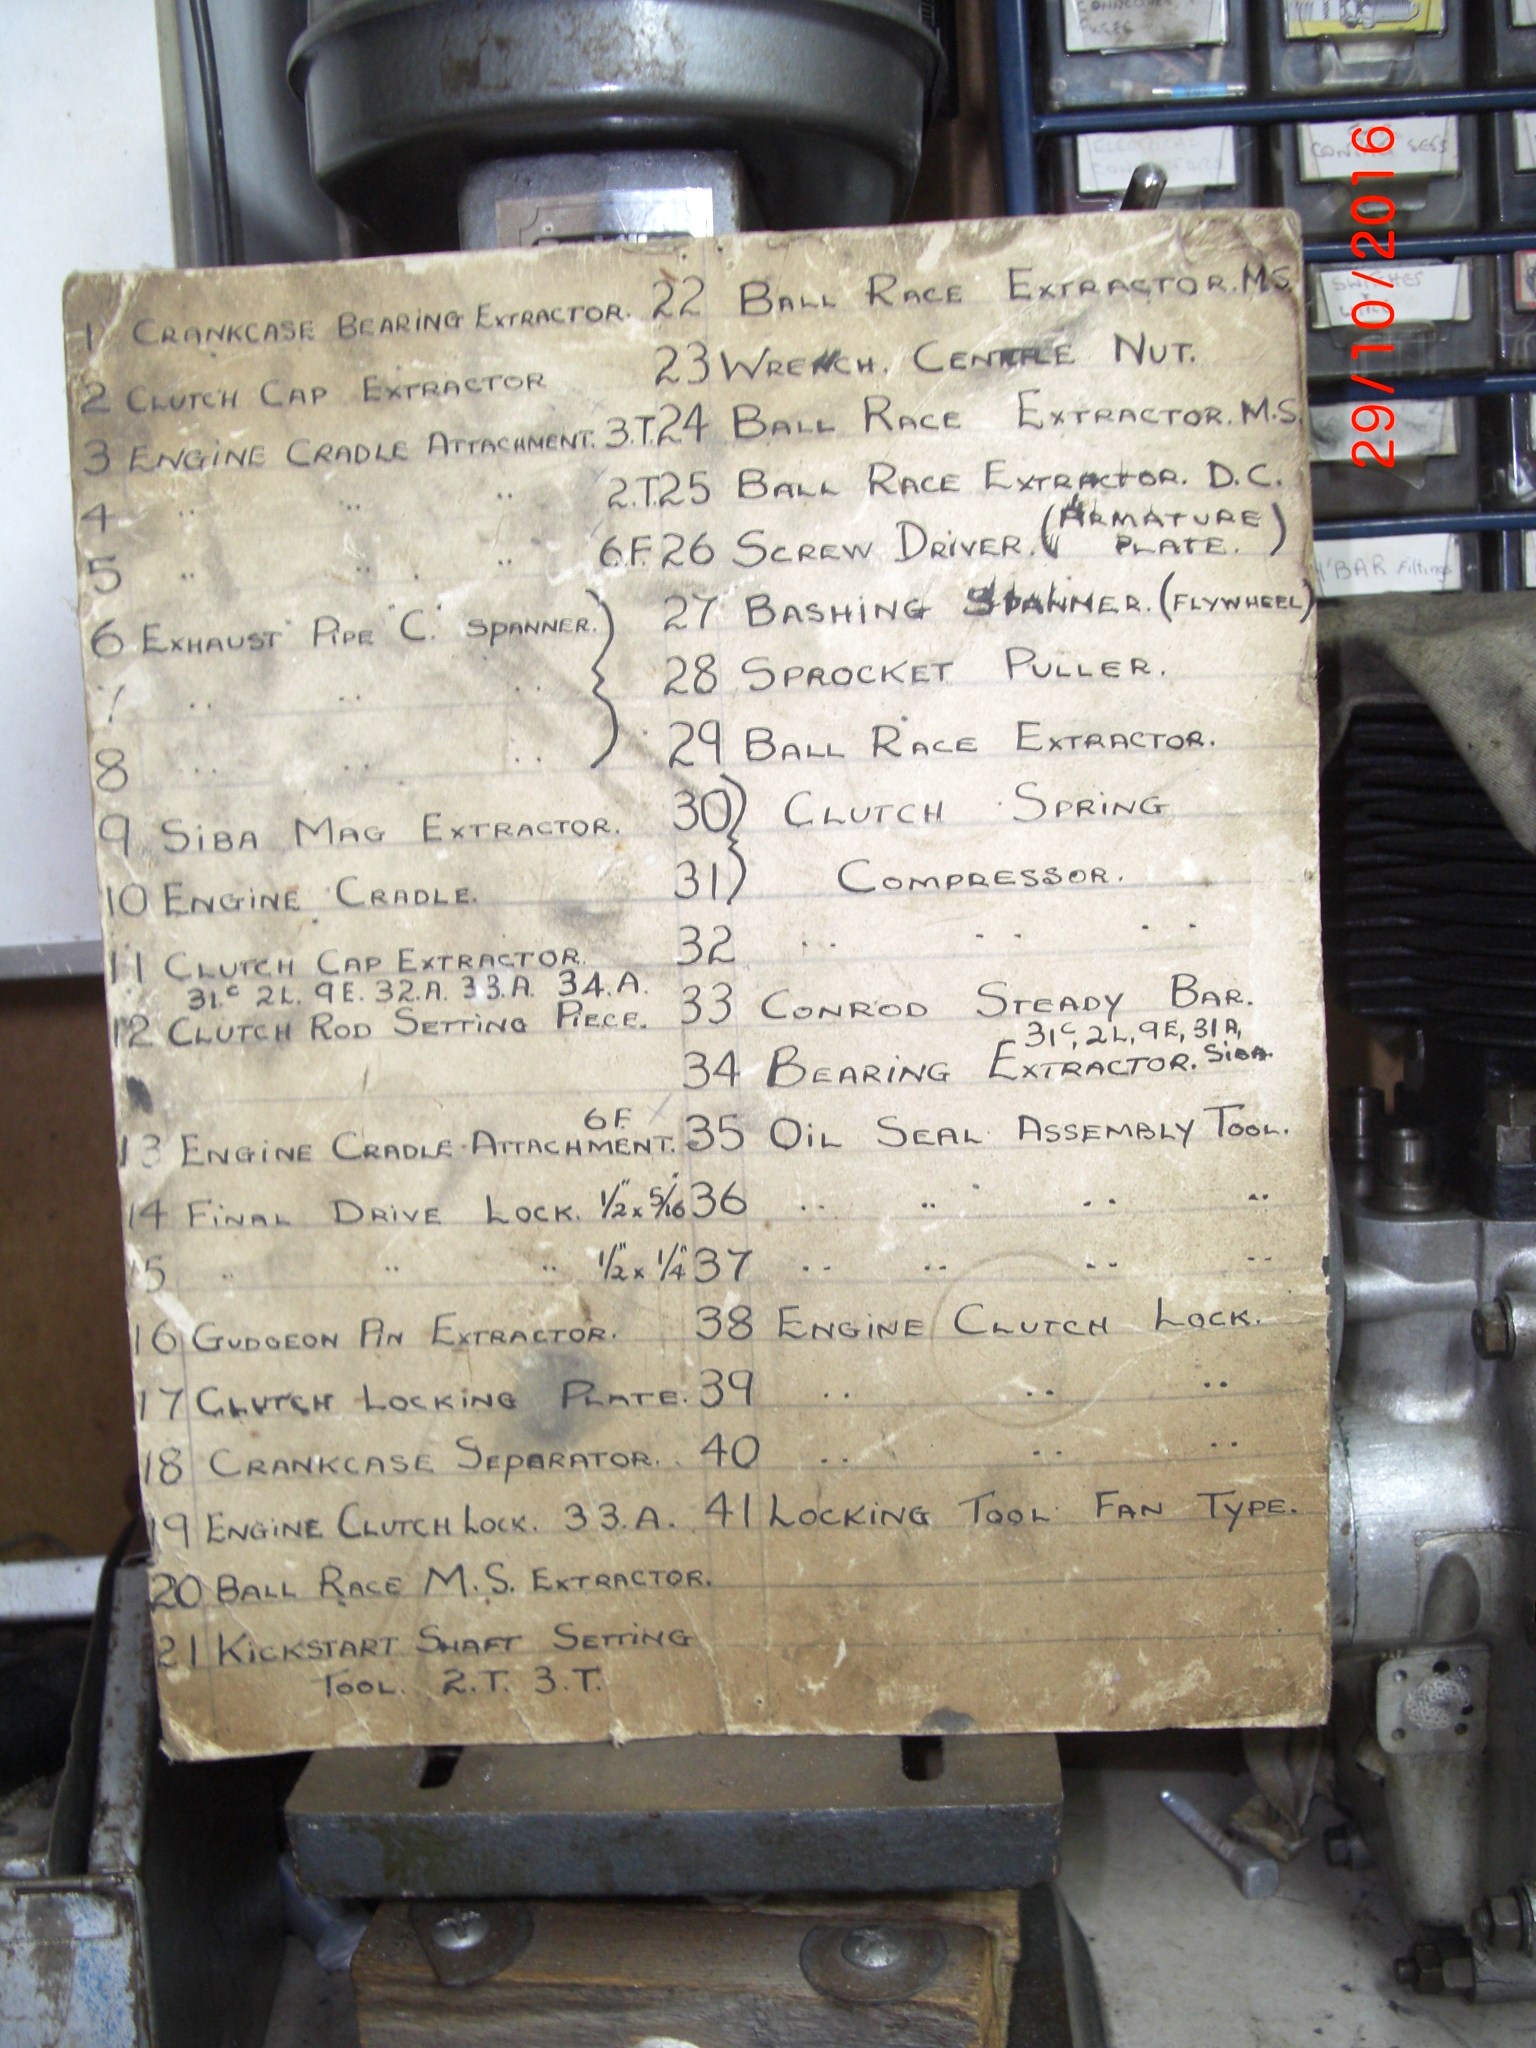 1 CRANKCASE BEARING EXTRACTOR.
2 CLUTCH CAP EXTRACTOR
3 ENGINE CRADLE ATTACHMENT. 3.T.
4 " " " 2.T.
5 " " " 6.F.
6 EXHAUST PIPE "C" SPANNER.)
7 " " "
8 " " "
9 SIBA MAG EXTRACTOR.
10 ENGINE CRADLE.
11 CLUTCH CAP EXTRACTOR.
31.C 2L. 9E. 32.A. 33.A. 34.A.
12 CLUTCH ROD SETTING PIECE.
6F.
13 ENGINE CRADLE ATTACHMENT.
14 FINAL DRIVE LOCK. 1/2" x 5/16
15 " " " 1/2" x 1/4"
16 GUDGEON PIN EXTRACTOR.
17 CLUTCH LOCKING PLATE.
18 CRANKCASE SEPERATOR.
19 ENGINE CLUTCH LOCK. 33.A.
20 BALL RACE M.S. EXTRACTOR.
21 KICKSTART SHAFT SETTING
TOOL. 2.T. 3.T.
22 BALL RACE EXTRACTOR. M.S.
23 WRENCH. CENTRE NUT.
24 BALL RACE EXTRACTOR. M.S.
25 BALL RACE EXTRACTOR. D.C.
26 SCREW DRIVER. (ARMATURE
PLATE.)
27 BASHING SPANNER. (FLYWHEEL)
28 SPROCKET PULLER.
29 BALL RACE EXTRACTOR.
30) CLUTCH SPRING
31) COMPRESSOR.
32 " " "
33 CONROD STEADY BAR.
31C, 2L, 9E, 31A,
34 BEARING EXTRACTOR. SIBA.
35 OIL SEAL ASSEMBLY TOOL.
36 " " " "
37 " " " "
38 ENGINE CLUTCH LOCK.
39 " " "
40 " " "
41 LOCKING TOOL FAN TYPE.
FUSES
SWITCHES
H'BAR Fittings
29/10/2016